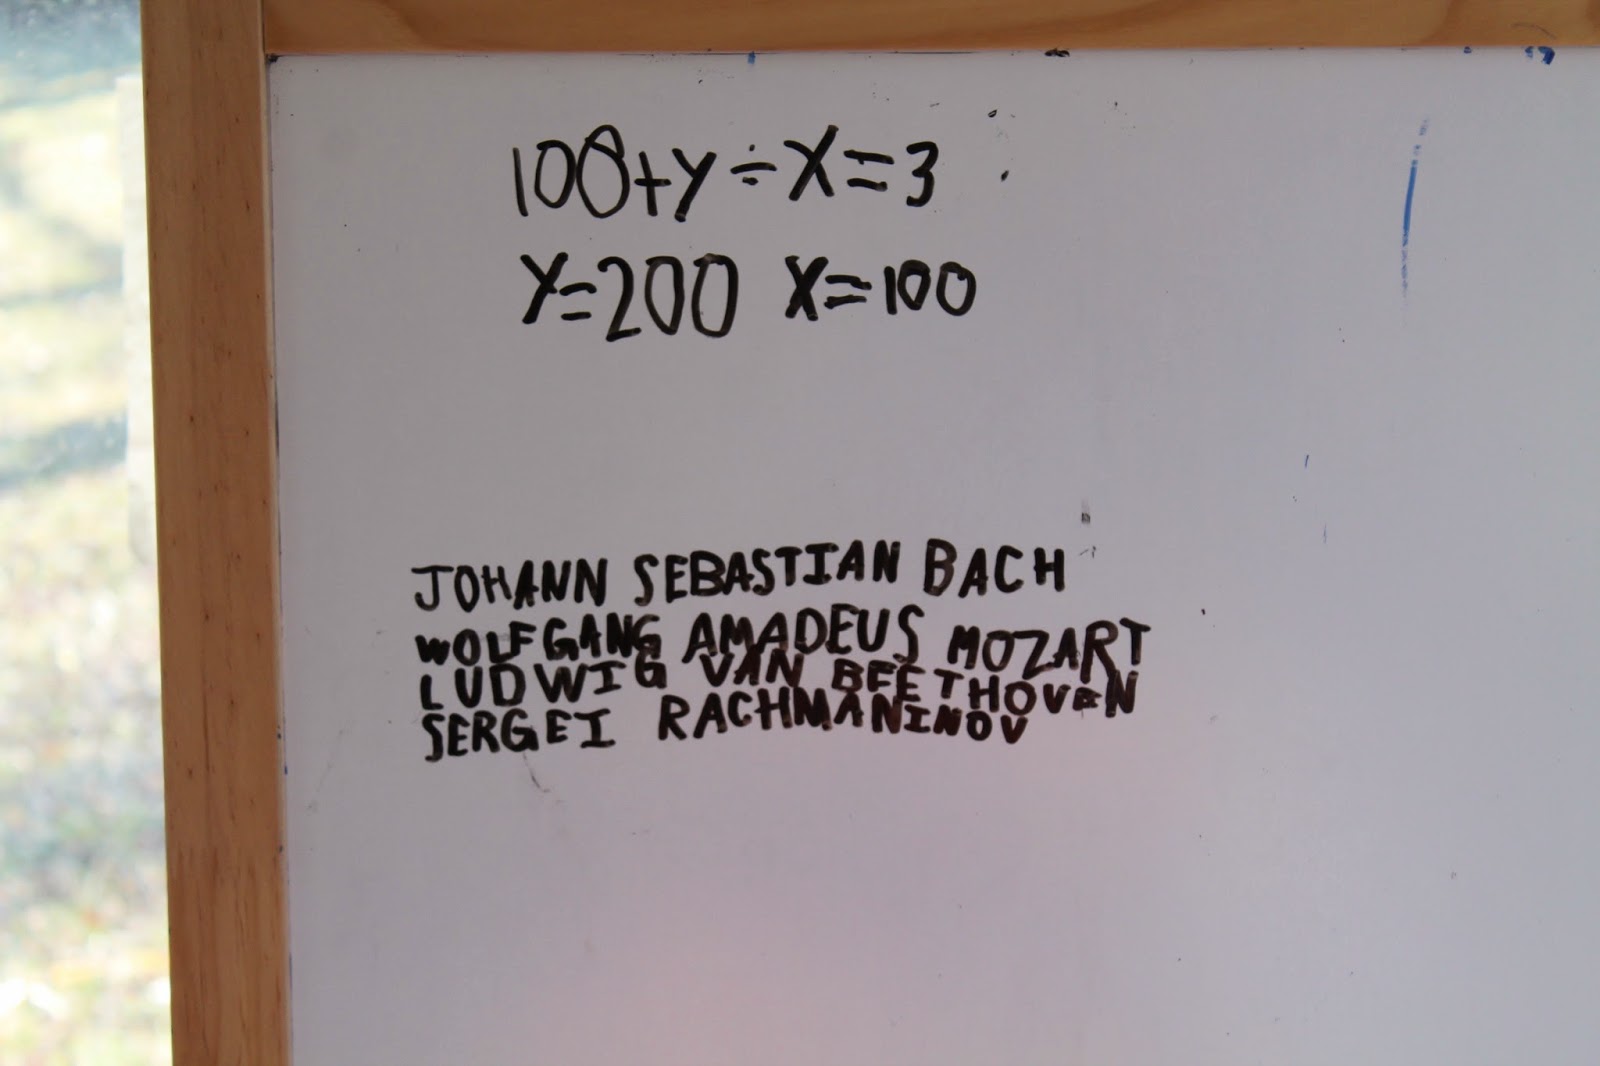 100+y÷x=3
y=200 x=100
JOHANN SEBASTIAN BACH
WOLFGANG AMADEUS MOZART
LUDWIG VAN BEETHOVEN
SERGEI RACHMANINOV